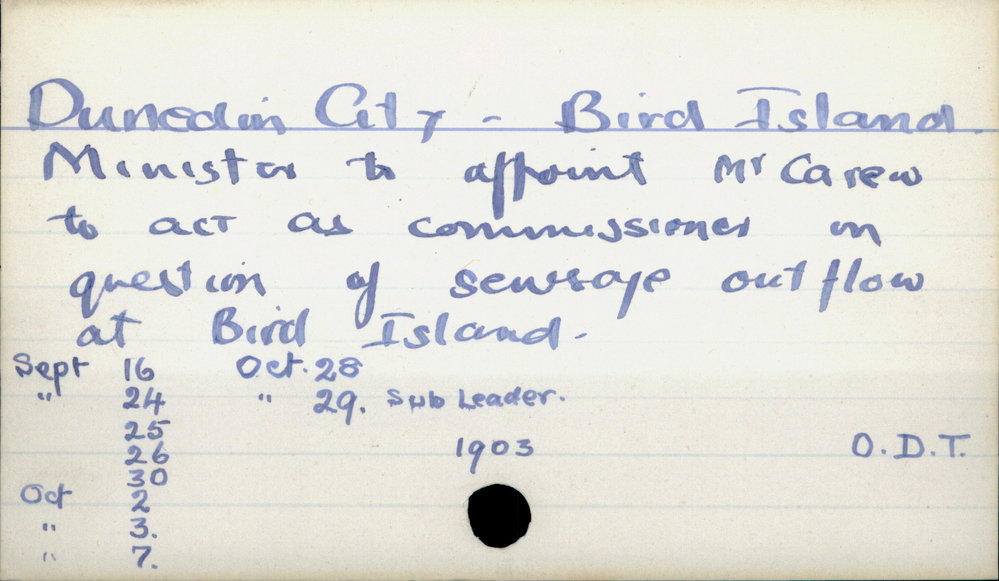 Dunedin City - Bird Island.
Minister to appoint Mr Carew
to act as commissioner in
question of sewerage outflow
at Bird Island.
Sept 16 Oct. 28
" 24 " 29. Sub Leader.
25
26 1903 O.D.T.
30
Oct 2
" 3.
" 7.